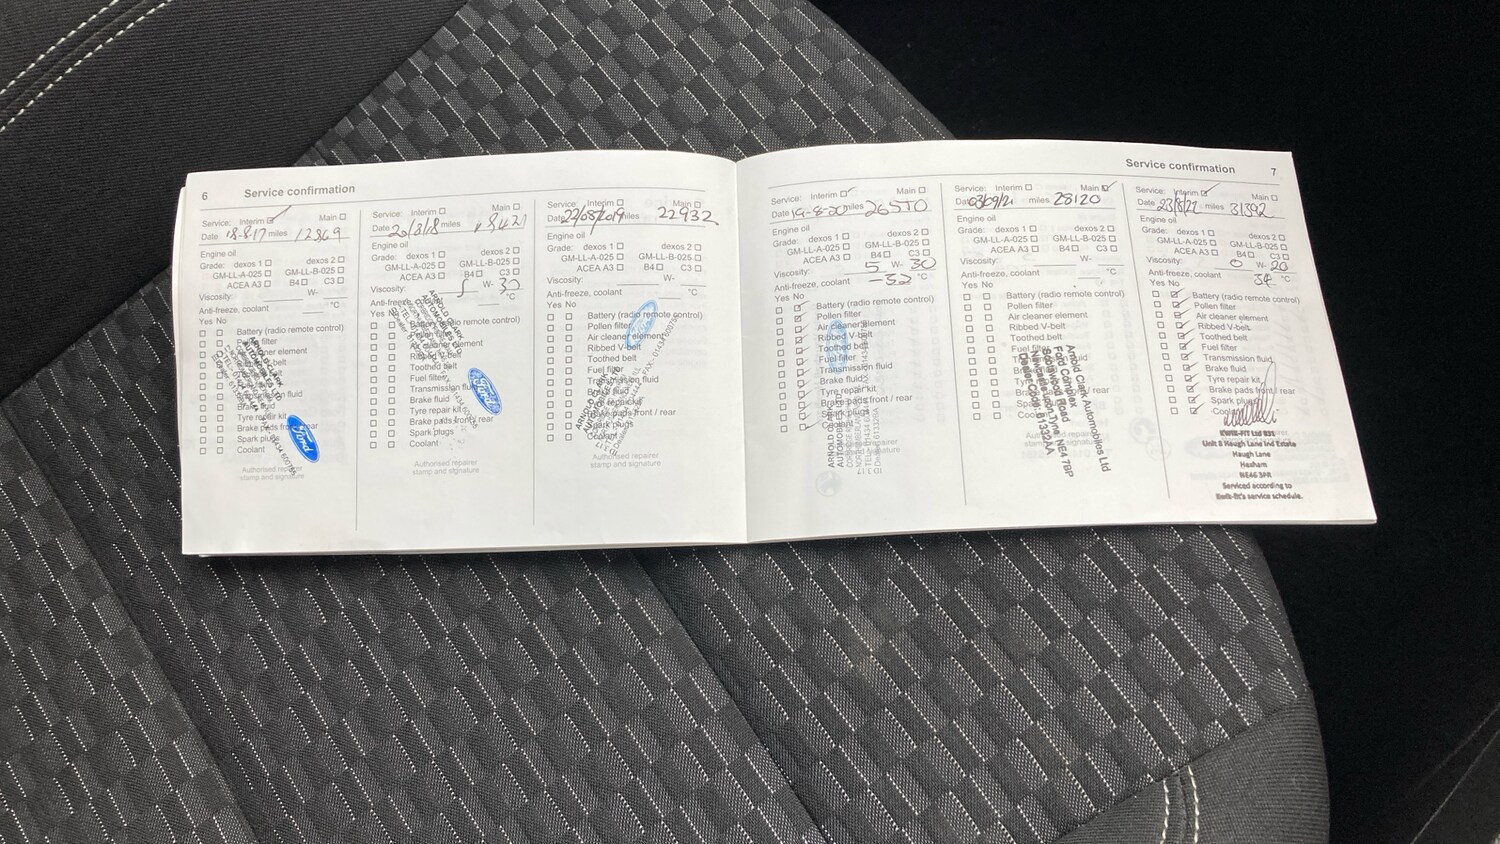 6 Service confirmation
Service: Interim Main
Date 18-8-17 miles 12369
Engine oil
Grade: dexos 1 dexos 2
GM-LL-A-025 GM-LL-B-025
ACEA A3 B4 C3
Viscosity: W-
Anti-freeze, coolant °C
Yes No
Battery (radio remote control)
Tyre repair kit
Brake pads front / rear
Spark plugs
Coolant
Ford
Authorised repairer
stamp and signature
Service: Interim Main
Date 20/8/18 miles 18421
Engine oil
Grade: dexos 1 dexos 2
GM-LL-A-025 GM-LL-B-025
ACEA A3 B4 C3
Viscosity: 5 W- 30
Anti-freeze, coolant °C
Yes No
Battery (radio remote control)
Pollen filter
Air cleaner element
Ribbed V-belt
Toothed belt
Fuel filter
Transmission fluid
Brake fluid
Tyre repair kit
Brake pads front / rear
Spark plugs
Coolant
Ford
Authorised repairer
stamp and signature
Service: Interim Main
Date 22/08/2019 miles 22932
Engine oil
Grade: dexos 1 dexos 2
GM-LL-A-025 GM-LL-B-025
ACEA A3 B4 C3
Viscosity: W-
Anti-freeze, coolant °C
Yes No
Battery (radio remote control)
Pollen filter
Air cleaner element
Ribbed V-belt
Toothed belt
Fuel filter
Transmission fluid
Brake fluid
Tyre repair kit
Brake pads front / rear
Spark plugs
Coolant
Authorised repairer
stamp and signature
Service confirmation 7
Service: Interim Main
Date 19-8-20 miles 26570
Engine oil
Grade: dexos 1 dexos 2
GM-LL-A-025 GM-LL-B-025
ACEA A3 B4 C3
Viscosity: 5 W- 30
Anti-freeze, coolant -32 °C
Yes No
Battery (radio remote control)
Pollen filter
Air cleaner element
Ribbed V-belt
Toothed belt
Fuel filter
Transmission fluid
Brake fluid
Tyre repair kit
Brake pads front / rear
Spark plugs
Coolant
Service: Interim Main
Date 03/09/21 miles 28120
Engine oil
Grade: dexos 1 dexos 2
GM-LL-A-025 GM-LL-B-025
ACEA A3 B4 C3
Viscosity: W-
Anti-freeze, coolant °C
Yes No
Battery (radio remote control)
Pollen filter
Air cleaner element
Ribbed V-belt
Toothed belt
Fuel filter
Transmission fluid
Brake fluid
Tyre repair kit
Brake pads front / rear
Spark plugs
Coolant
Arnold Clark Automobiles Ltd
Ford Complex
Scotswood Road
Newcastle upon Tyne NE4 7BP
Dealer Code: 61332AA
Service: Interim Main
Date 23/8/22 miles 31392
Engine oil
Grade: dexos 1 dexos 2
GM-LL-A-025 GM-LL-B-025
ACEA A3 B4 C3
Viscosity: 0 W- 20
Anti-freeze, coolant 34 °C
Yes No
Battery (radio remote control)
Pollen filter
Air cleaner element
Ribbed V-belt
Toothed belt
Fuel filter
Transmission fluid
Brake fluid
Tyre repair kit
Brake pads front / rear
Spark plugs
Coolant
KWIK-FIT Ltd 831
Unit 8 Haugh Lane Ind Estate
Haugh Lane
Hexham
NE46 3PR
Serviced according to
Kwik-fit's service schedule.